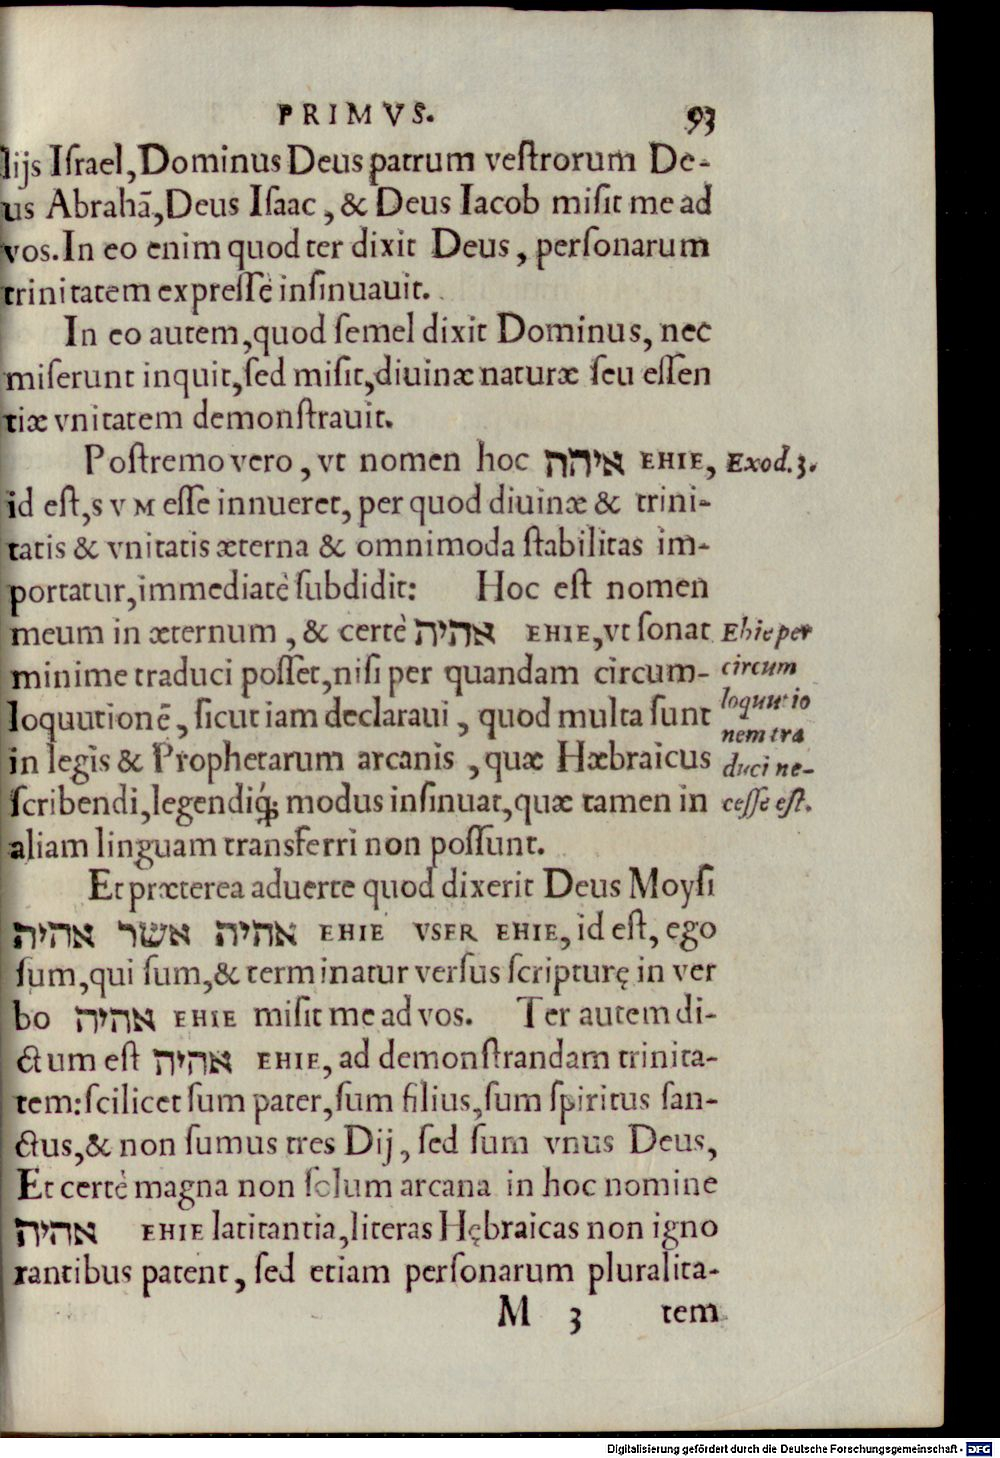 PRIMVS. 93
lijs Iſrael, Dominus Deus patrum veſtrorum De-
us Abrahā, Deus Iſaac, & Deus Iacob miſit me ad
vos. In eo enim quod ter dixit Deus, perſonarum
trinitatem expreſſè inſinuauit.
In eo autem, quod ſemel dixit Dominus, nec
miſerunt inquit, ſed miſit, diuinæ naturæ ſeu eſſen
tiæ vnitatem demonſtrauit.
Poſtremo vero, vt nomen hoc איהה EHIE, Exod. 3.
id eſt, SVM eſſe innueret, per quod diuinæ & trini-
tatis & vnitatis æterna & omnimoda ſtabilitas im-
portatur, immediatè ſubdidit: Hoc eſt nomen
meum in æternum, & certè אהיה EHIE, vt ſonat Ehie per
minime traduci poſſet, niſi per quandam circum- circum
loquutionē, ſicut iam declaraui, quod multa ſunt loquutio
nem tra
in legis & Prophetarum arcanis, quæ Hæbraicus duci ne-
ſcribendi, legendiq́; modus inſinuat, quæ tamen in ceſſe eſt.
aliam linguam transferri non poſſunt.
Et præterea aduerte quod dixerit Deus Moyſi
אהיה אשר אהיה EHIE VSER EHIE, id eſt, ego
ſum, qui ſum, & terminatur verſus ſcripturę in ver
bo אהיה EHIE miſit me ad vos. Ter autem di-
ctum eſt אהיה EHIE, ad demonſtrandam trinita-
tem: ſcilicet ſum pater, ſum filius, ſum ſpiritus ſan-
ctus, & non ſumus tres Dij, ſed ſum vnus Deus,
Et certè magna non ſolum arcana in hoc nomine
אהיה EHIE latitantia, literas Hębraicas non igno
rantibus patent, ſed etiam perſonarum pluralita-
M 3 tem
Digitalisierung gefördert durch die Deutsche Forschungsgemeinschaft - DFG